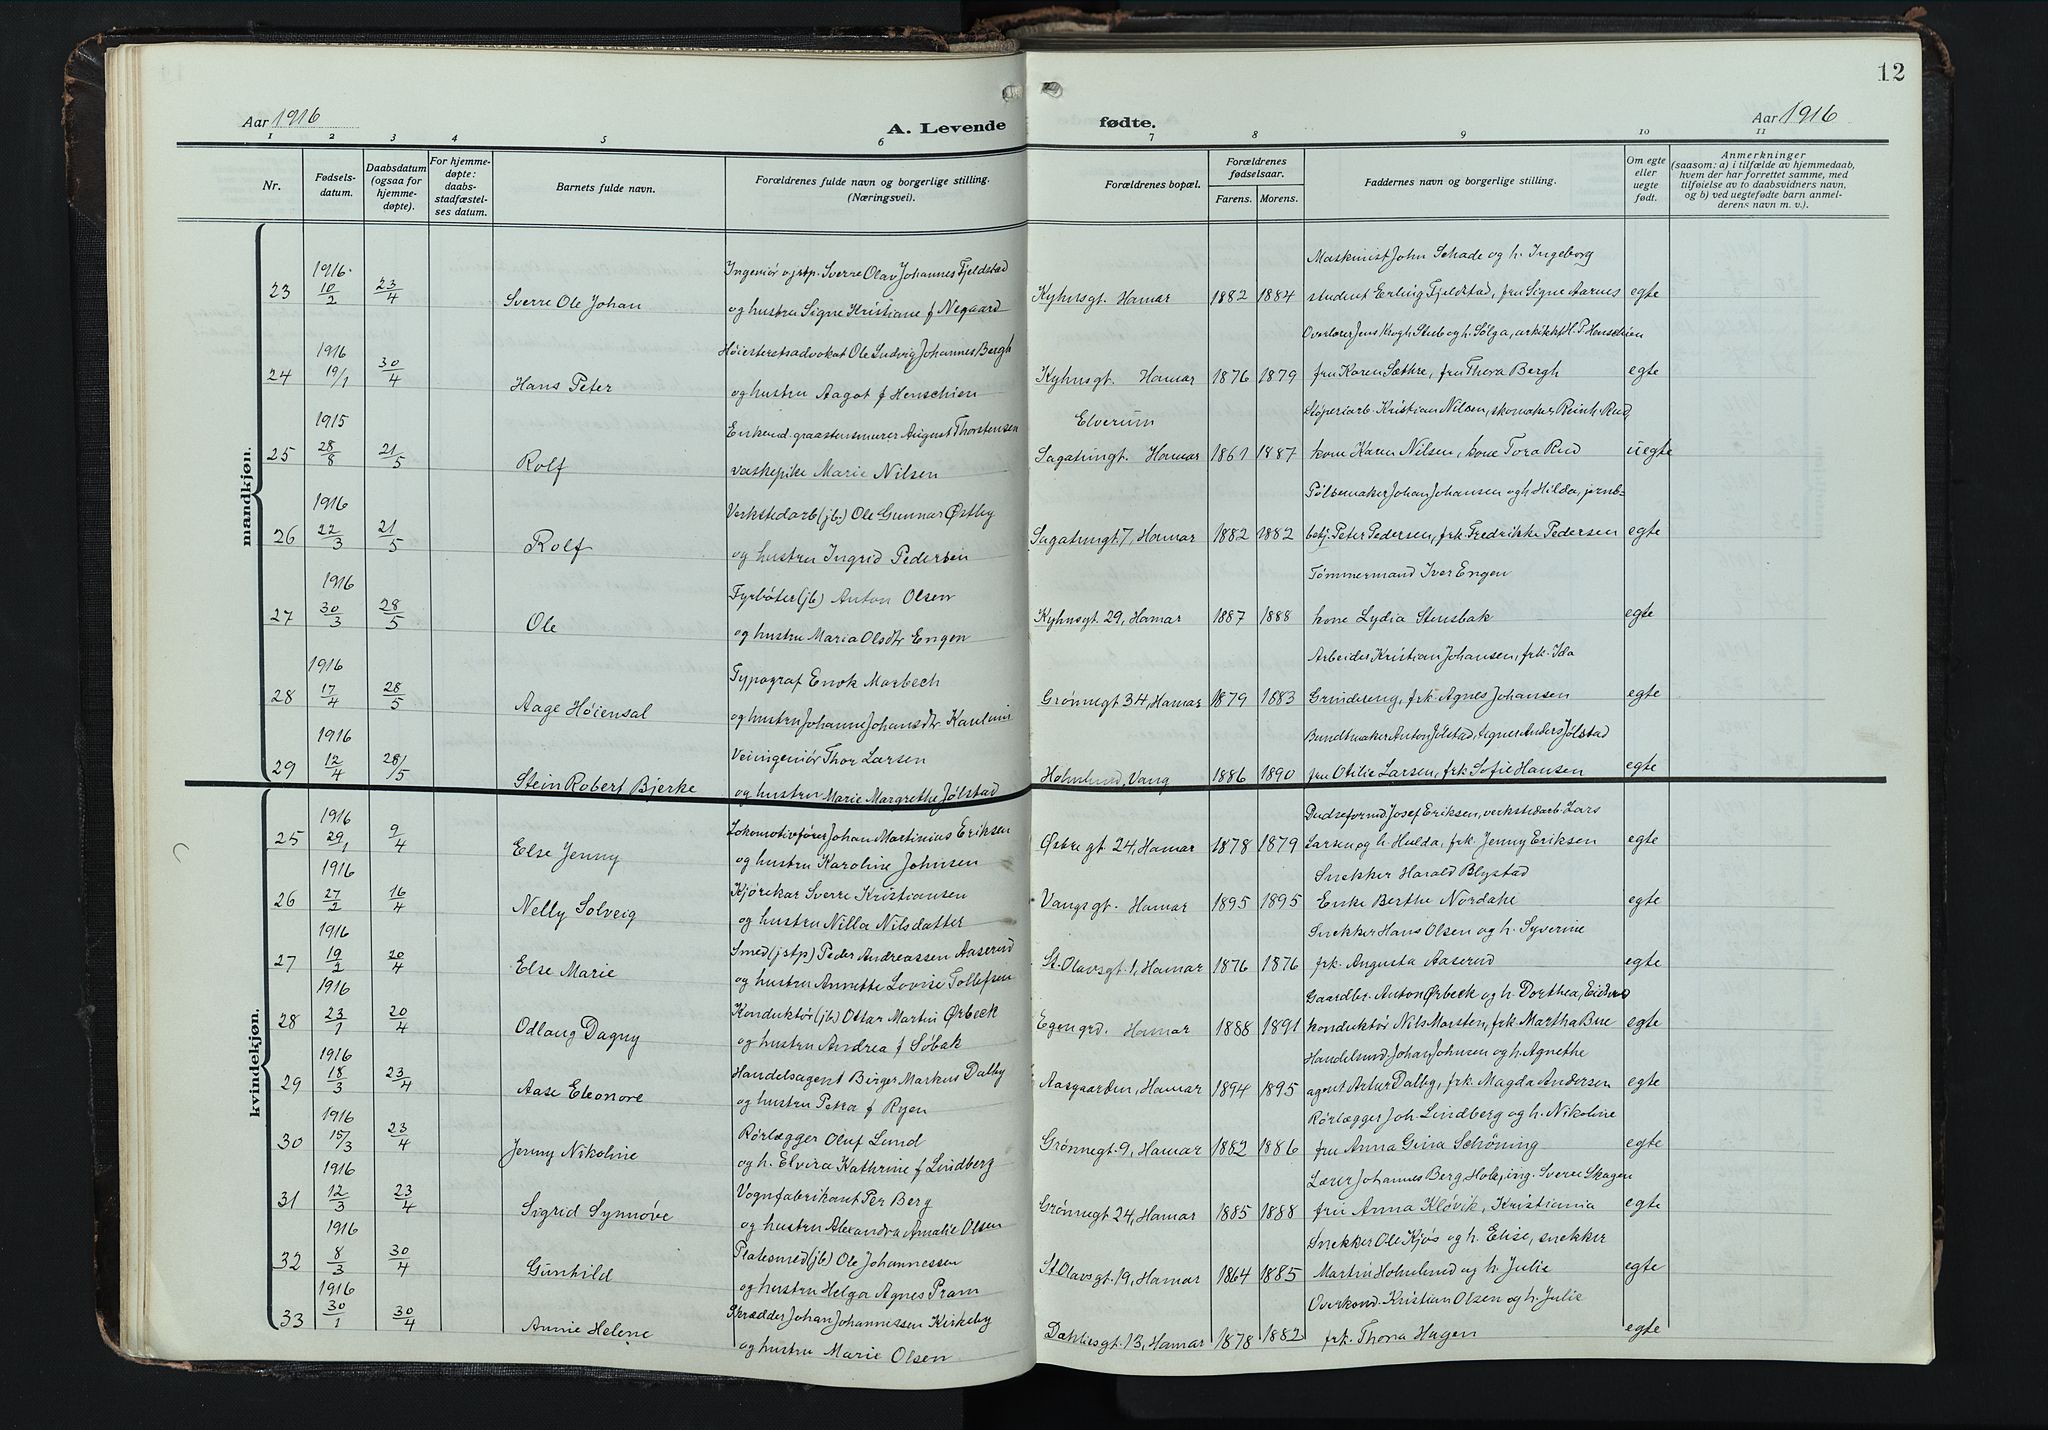 12
Aar 1916
A. Levende fødte.
Aar 1916
1 2 3 4 5 6 7 8 9 10 11
Nr.
Fødsels-
datum.
Daabsdatum
(ogsaa for
hjemme-
døpte).
For hjemme-
døpte:
daabs-
stadfæstel-
ses datum.
Barnets fulde navn.
Forældrenes fulde navn og borgerlige stilling.
(Næringsvei).
Forældrenes bopæl.
Forældrenes
fødselsaar.
Farens. Morens.
Faddernes navn og borgerlige stilling.
Om egte
eller
uegte
født.
Anmerkninger
(saasom: a) i tilfælde av hjemmedaab,
hvem der har forrettet samme, med
tilføielse av to daabsvidners navn,
og b) ved uegtefødte barn anmel-
derens navn m. v.).
mandkjøn.
1916 Ingeniør v. jstp. Sverre Olav Johannes Fjeldstad Maskinist John Schade og h. Ingeborg
23 10/2 23/4 Sverre Ole Johan og hustru Signe Kristiane f Negaard Kyhnsgt. Hamar 1882 1884 student Erling Fjeldstad, fru Signe Aarnes egte
1916 Høiesteretsadvokat Ole Ludvig Johannes Bergh Overlærer Jens Krogh Stub og h. Sølga, arkitekt H. P. Henschien
24 19/1 30/4 Hans Peter og hustru Aagot f Henschien Kyhnsgt. Hamar 1876 1879 fru Karen Sæthre, fru Thora Bergh egte
1915 Enkemd. graastensmurer August Thorstensen Elverum Støperiarb. Kristian Nilsen, skomaker Reinh. Rud,
25 28/8 21/5 Rolf vaskepike Marie Nilsen Sagatungt. Hamar 1861 1887 kone Karen Nilsen, kone Tora Rud uegte
1916 Verkstedarb (jb.) Ole Gunnar Østby Pølsemaker Johan Johansen og h Hilda, jernb-
26 22/3 21/5 Rolf og hustru Ingrid Pedersen Sagatungt 7, Hamar 1882 1882 betj. Peter Pedersen, frk. Fredrikke Pedersen egte
1916 Fyrbøter (jb) Anton Olsen Tømmermand Iver Engen
27 30/3 28/5 Ole og hustru Maria Olsdtr Engen Kyhnsgt. 29, Hamar 1887 1888 kone Lydia Stensbak egte
1916 Typograf Enok Marbech Arbeider Kristian Johansen, frk. Ida
28 17/4 28/5 Aage Høiensal og hustru Johanne Johansdtr. Grønnegt 34, Hamar 1879 1883 Grindereng, frk. Agnes Johansen egte
1916 Veiingeniør Thor Larsen Bundtmaker Anton Jølstad, Anders Jølstad
29 12/4 28/5 Stein Robert Bjerke og hustru Marie Margrethe Jølstad Holmlund, Vang 1886 1890 fru Otilie Larsen, frk. Sofie Hansen egte
kvindekjøn.
1916 Lokomotivfører Johan Martinius Eriksen Pudseformd Josef Eriksen, verkstedarb. Lars
25 29/1 9/4 Else Jenny og hustru Karoline Johnsen Østre gt 24, Hamar 1878 1879 Larsen og h. Hulda, frk. Jenny Eriksen egte
1916 Kjørekar Sverre Kristiansen Snekker Harald Blystad
26 27/2 16/4 Nelly Solveig og hustru Nilla Nilsdatter Vangsgt. Hamar 1895 1895 Enke Berthe Nordahl egte
1916 Smed (jstp) Peder Andreassen Aaserud Snekker Hans Olsen og h. Syverine
27 19/2 20/4 Else Marie og hustru Annette Lovise Tollefsen St. Olavsgt. 1, Hamar 1876 1876 frk. Augusta Aaserud egte
1916 Konduktør (jb) Ottar Martin Ørbeck Gaardbr. Anton Ørbeck og h. Dorthea, Eidsvold
28 23/1 20/4 Odlaug Dagny og hustru Andrea f Søbak Egengrd. Hamar 1888 1891 konduktør Nils Morsten, frk. Martha Bue egte
1916 Handelsagent Birger Markus Dalby Handelsmd. Johan Johnsen og h. Agnethe
29 18/3 23/4 Aase Eleonore og hustru Petra f Ryen Aasgaarden, Hamar 1894 1895 agent Artur Dalby, frk. Magda Andersen egte
1916 Rørlægger Oluf Lund Rørlægger Joh. Lindberg og h. Nikoline
30 15/3 23/4 Jenny Nikoline og h. Elvira Kathrine f Lindberg Grønnegt. 9, Hamar 1882 1886 fru Anna Gina Schöning egte
1916 Vognfabrikant Per Berg Lærer Johannes Berg Hole, ing. Sverre Skagen
31 12/3 23/4 Sigrid Synnøve og hustru Alexandra Amalie Olsen Grønnegt 24, Hamar 1885 1888 fru Anna Kløvik, Kristiania egte
1916 Platesmed (jb) Ole Johannessen Snekker Ole Kjøs og h. Elise, snekker
32 8/3 30/4 Gunhild og hustru Helga Agnes Pram St. Olavsgt. 19, Hamar 1864 1885 Martin Holmlund og h. Julie egte
1916 Skrædder Johan Johannessen Kirkeby Overkond. Kristian Olsen og h. Julie
33 30/1 30/4 Annie Helene og hustru Marie Olsen Dahlesgt. 13, Hamar 1878 1882 frk. Thona Hagen egte